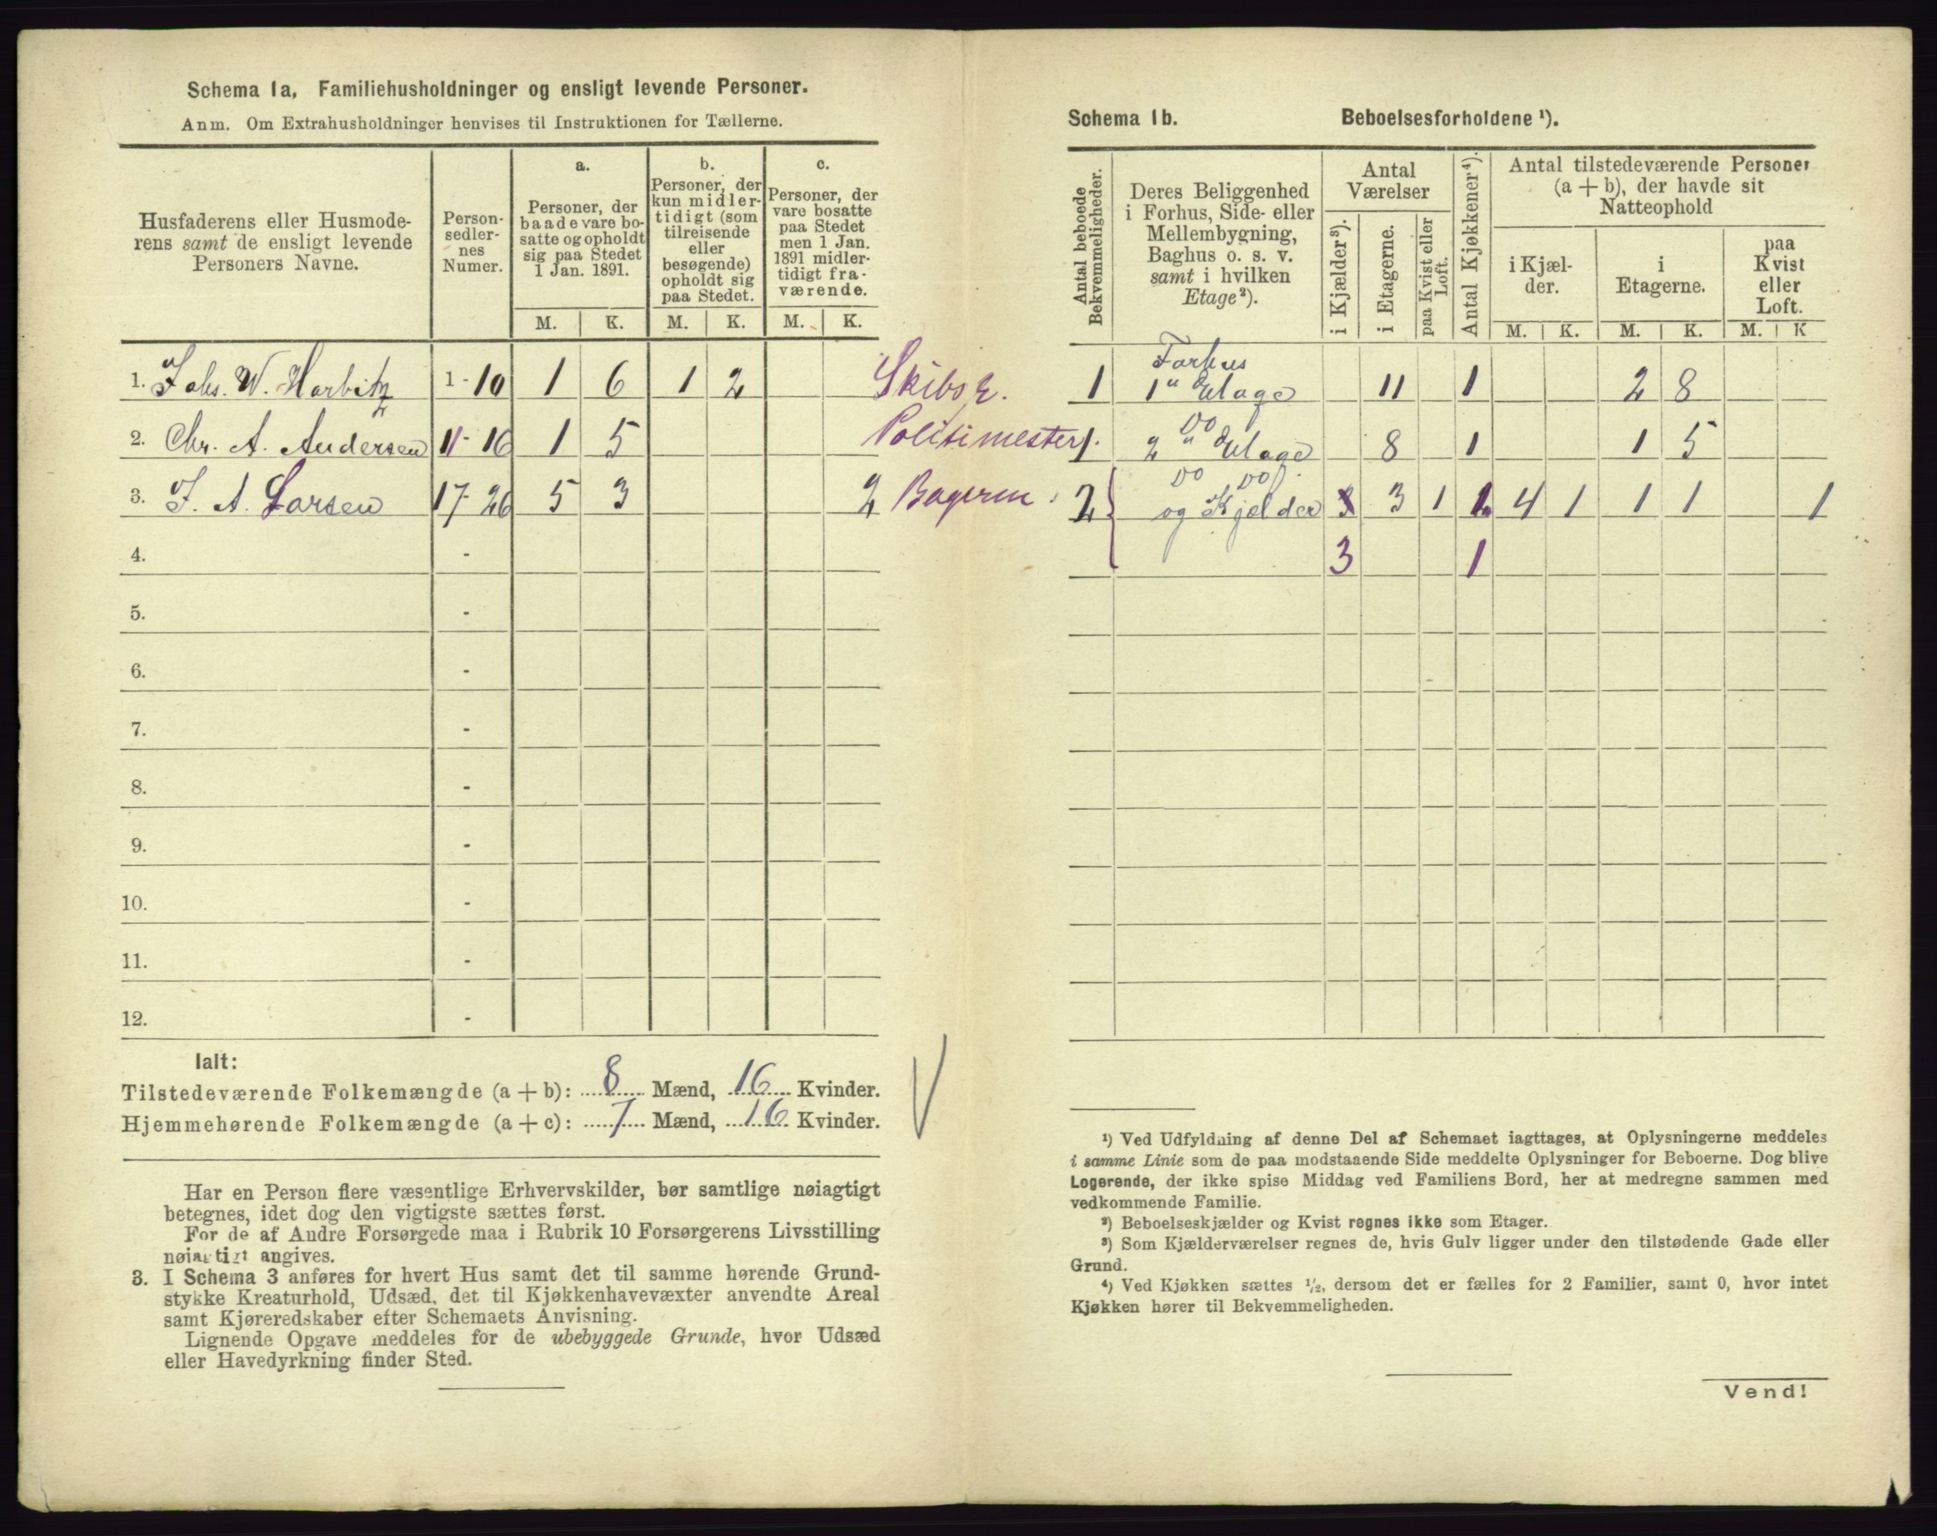 Schema 1a. Familiehusholdninger og ensligt levende Personer.
Anm. Om Extrahusholdninger henvises til Instruktionen for Tællerne.
Husfaderens eller Husmoderens samt de ensligt levende Personers Navne.
Personsedlernes Numer.
a. Personer, der baade vare bosatte og opholdt sig paa Stedet 1 Jan. 1891.
b. Personer, der kun midlertidigt (som tilreisende eller besøgende) opholdt sig paa Stedet.
c. Personer, der vare bosatte paa Stedet men 1 Jan. 1891 midlertidigt fraværende.
M. K. M. K. M. K.
1. Johs. W. Horbitz 1-10 1 6 1 2 Skibsr.
2. Chr. A. Andersen 11-16 1 5 Politimester
3. J. A. Larsen 17-26 5 3 2 Bageren
4. -
5. -
6. -
7. -
8. -
9. -
10. -
11. -
12. -
Ialt:
Tilstedeværende Folkemængde (a + b): 8 Mænd, 16 Kvinder.
Hjemmehørende Folkemængde (a + c): 7 Mænd, 16 Kvinder.
Har en Person flere væsentlige Erhvervskilder, bør samtlige nøiagtigt
betegnes, idet dog den vigtigste sættes først.
For de af Andre Forsørgede maa i Rubrik 10 Forsørgerens Livsstilling
nøiagtigt angives.
3. I Schema 3 anføres for hvert Hus samt det til samme hørende Grund-
stykke Kreaturhold, Udsæd, det til Kjøkkenhavevæxter anvendte Areal
samt Kjøreredskaber efter Schemaets Anvisning.
Lignende Opgave meddeles for de ubebyggede Grunde, hvor Udsæd
eller Havedyrkning finder Sted.
Schema 1b. Beboelsesforholdene ¹).
Antal beboede Bekvemmeligheder.
Deres Beliggenhed i Forhus, Side- eller Mellembygning, Baghus o. s. v. samt i hvilken Etage²).
Antal Værelser
i Kjælder³).
i Etagerne.
paa Kvist eller Loft.
Antal Kjøkkener⁴).
Antal tilstedeværende Personer (a + b), der havde sit Natteophold
i Kjælder.
i Etagerne.
paa Kvist eller Loft.
M. K. M. K. M. K
1 Forhus
1" Etage 11 1 2 8
1. Do
2" Etage 8 1 1 5
2 Do Do
og Kjelder 3 1 1 4 1 1 1 1
3 1
¹) Ved Udfyldning af denne Del af Schemaet iagttages, at Oplysningerne meddeles
i samme Linie som de paa modstaaende Side meddelte Oplysninger for Beboerne. Dog blive
Logerende, der ikke spise Middag ved Familiens Bord, her at medregne sammen med
vedkommende Familie.
²) Beboelseskjælder og Kvist regnes ikke som Etager.
³) Som Kjælderværelser regnes de, hvis Gulv ligger under den tilstødende Gade eller
Grund.
⁴) Ved Kjøkken sættes ¹/₂, dersom det er fælles for 2 Familier, samt 0, hvor intet
Kjøkken hører til Bekvemmeligheden.
Vend!